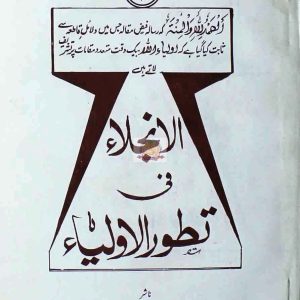 الحمد للہ والمنۃ کہ رسالہ فیض مقالہ جس میں دلائل قاطعہ سے
ثابت کیا گیا ہے کہ اولیاء اللہ بیک وقت متعدد مقامات پر تشریف
لاتے ہیں
الانجلاء
فی
تطور الاولیاء
ناشر